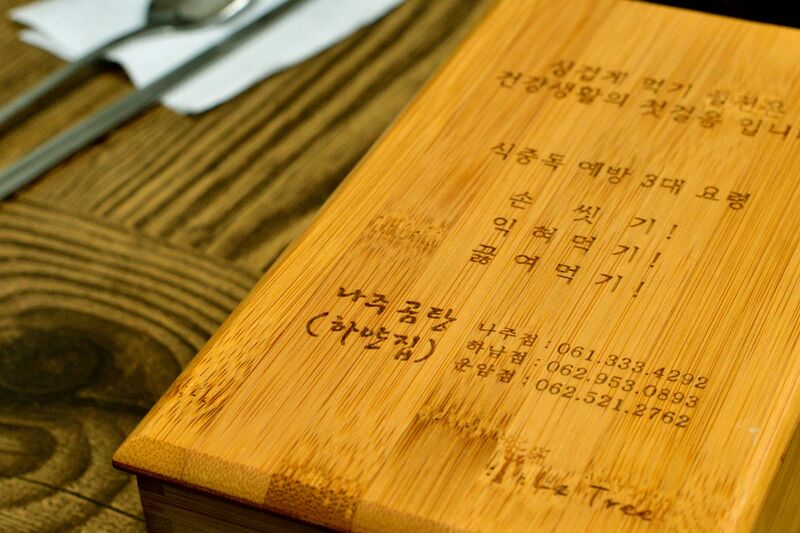 싱겁게 먹기 실천은
건강생활의 첫걸음 입니
식중독 예방 3대 요령
손 씻 기 !
익 혀 먹 기 !
끓 여 먹 기 !
나주곰탕
(하얀집)
나주점 : 061.333.4292
하남점 : 062.953.0893
운암점 : 062.521.2762
Tree